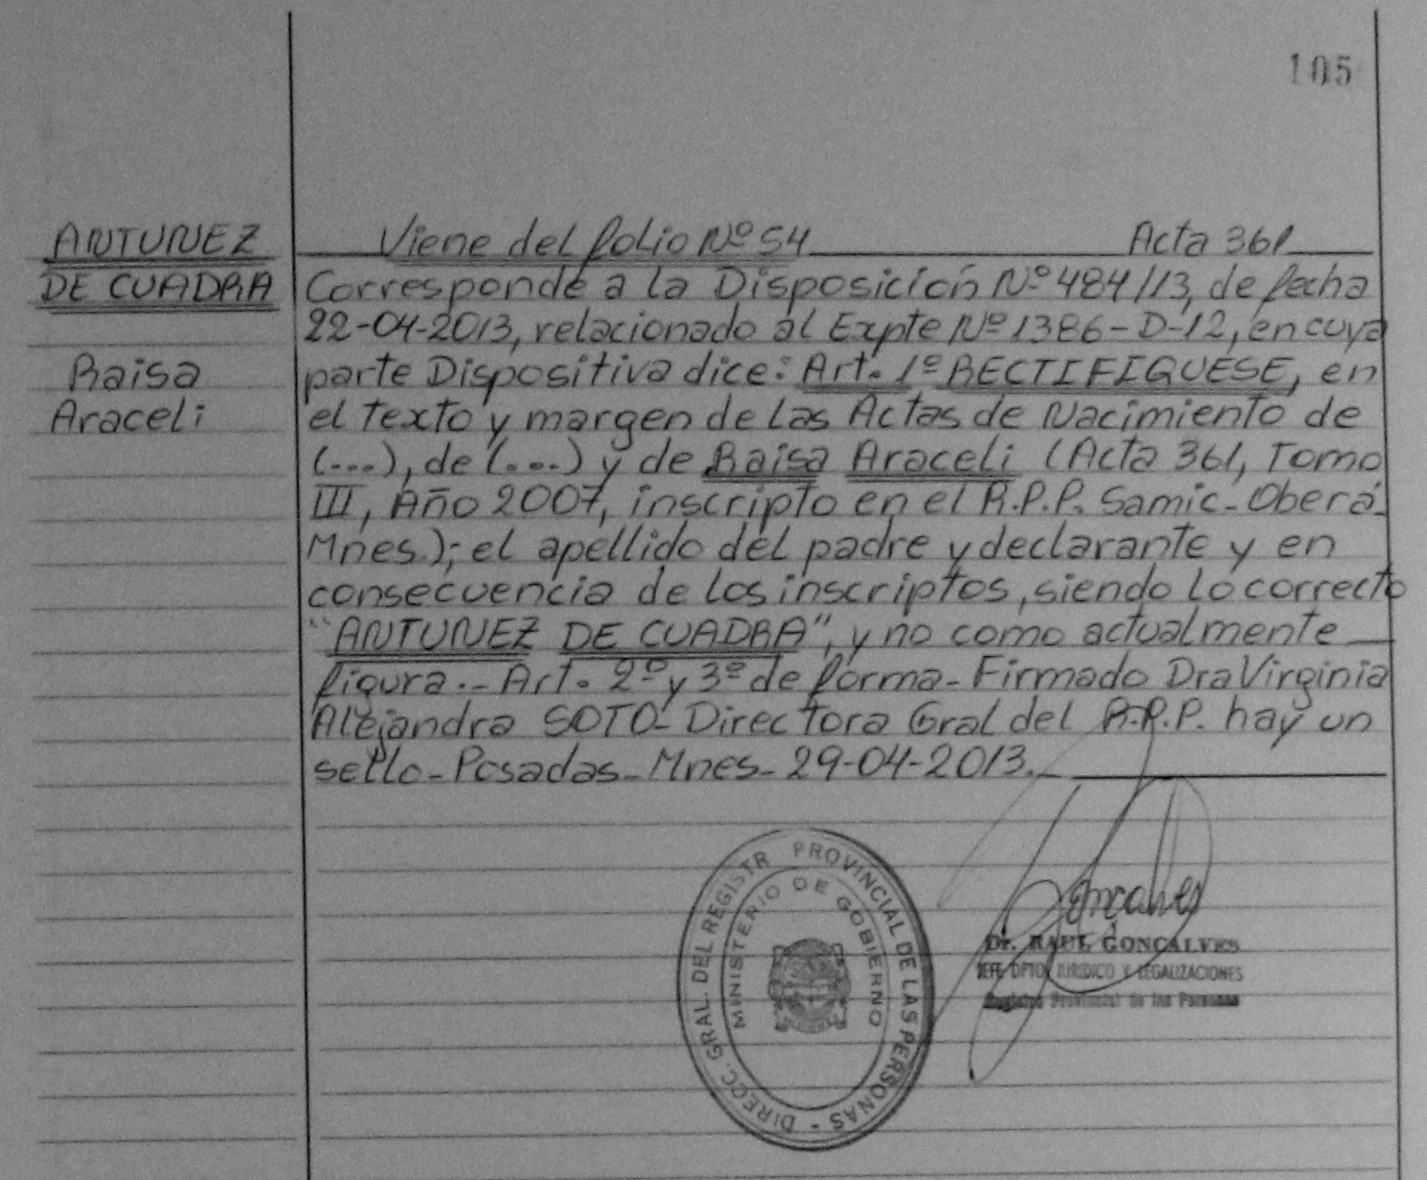 105
ANTUNEZ
DE CUADRA
Raisa
Araceli
Viene del folio Nº 54 Acta 361
Corresponde a la Disposición Nº 484/13, de fecha
22-04-2013, relacionado al Expte Nº 1386-D-12, en cuya
parte Dispositiva dice: Art. 1º RECTIFIQUESE, en
el texto y margen de las Actas de Nacimiento de
(...), de (...) y de Raisa Araceli (Acta 361, Tomo
III, Año 2007, inscripto en el R.P.P. Samic-Oberá-
Mnes.); el apellido del padre y declarante y en
consecuencia de los inscriptos, siendo lo correcto
"ANTUNEZ DE CUADRA", y no como actualmente
figura.- Art. 2º y 3º de forma- Firmado Dra Virginia
Alejandra SOTO- Directora Gral del R.P.P. hay un
sello- Posadas- Mnes- 29-04-2013.-
DIRECC. GRAL. DEL REGISTR PROVINCIAL DE LAS PERSONAS -
MINISTERIO DE GOBIERNO
Gonçalves
Dr. RAUL GONCALVES
JEFE DPTO. JURIDICO Y LEGALIZACIONES
Registro Provincial de las Personas